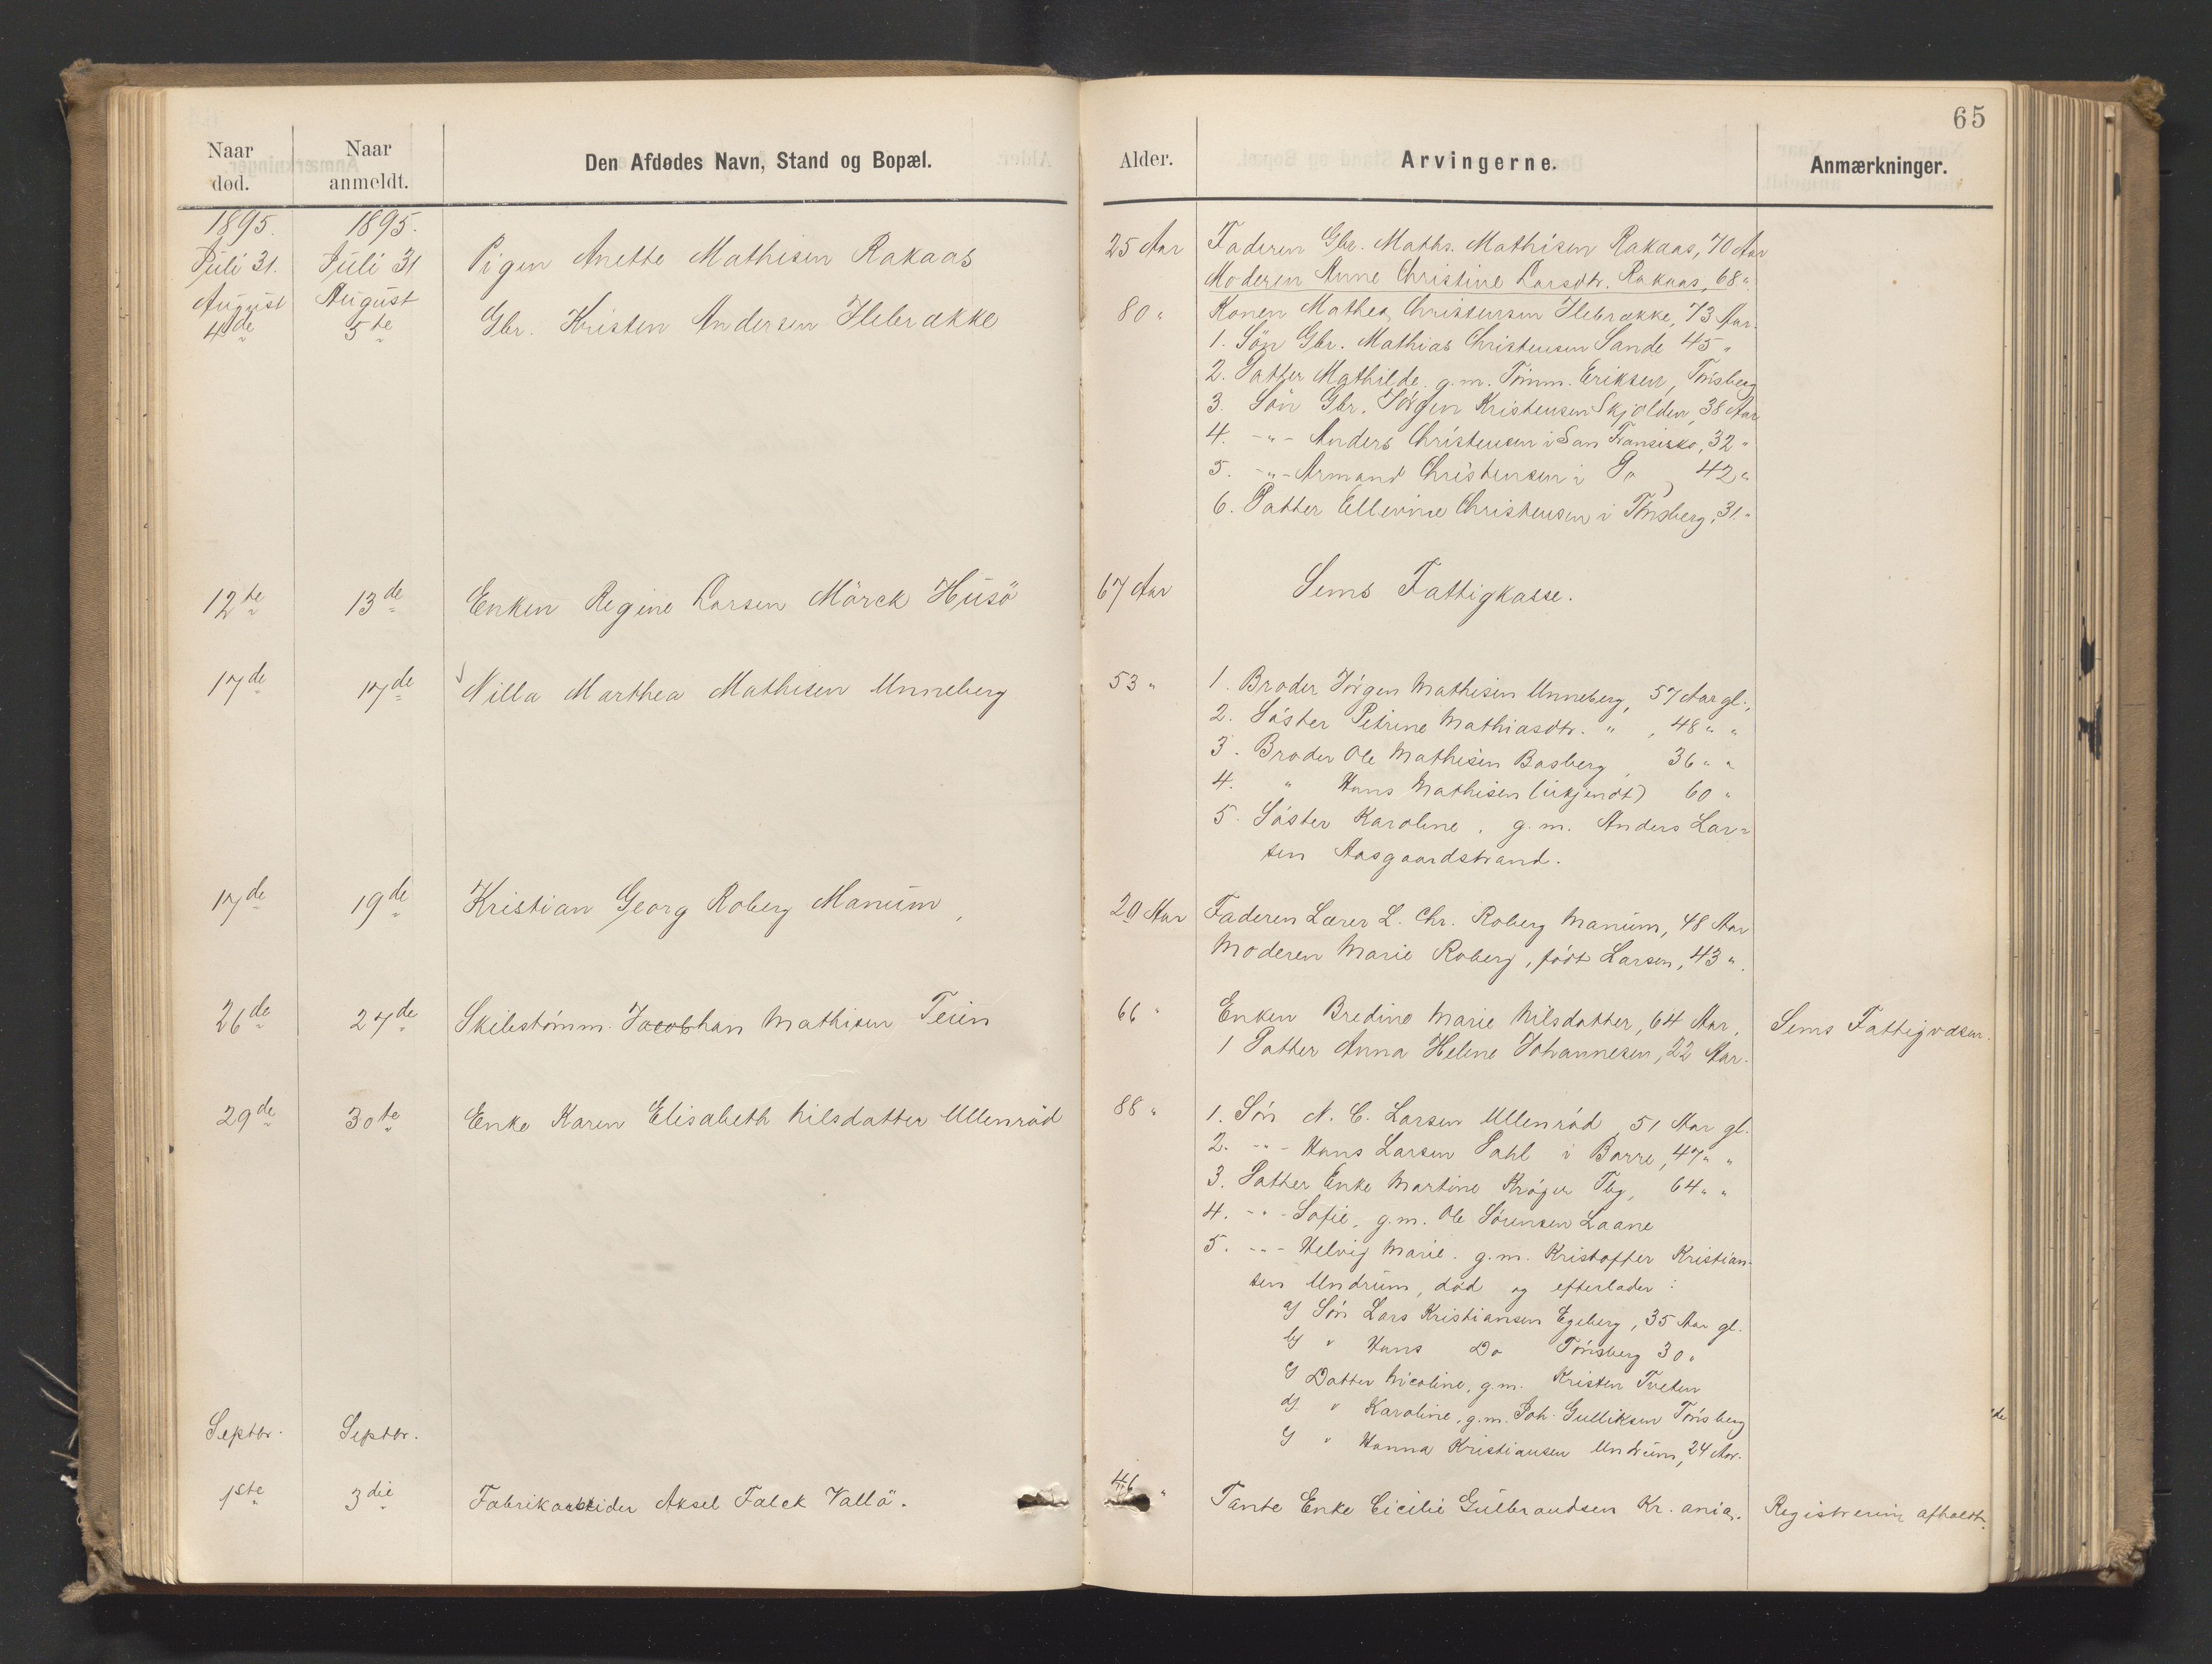 65
Naar død.
Naar anmeldt.
Den Afdødes Navn, Stand og Bopæl.
Alder.
Arvingerne.
Anmærkninger.
1895. 1895.
Juli 31. Juli 31 Pigen Anette Mathisen Rakaas 25 Aar Faderen Gbr. Maths. Mathisen Rakaas, 70 Aar
Moderen Anne Christine Larsdtr. Rakaas, 68 "
August August
4de 5te Gbr. Kristen Andersen Ilebrække 80 " Konen Mathea Christensen Ilebrække, 73 Aar.
1. Sön Gbr. Mathias Christensen Sande 45 "
2. Datter Mathilde g.m. Tömm. Eriksen, Tönsberg
3. Sön Gbr. Jörgen Kristensen Skjolden, 38 Aar
4. -"- Anders Christensen i San Fransisko, 32 "
5. -"- Armand Christensen i Do, 42 "
6. Datter Ellevine Christensen i Tönsberg, 31 "
12te 13de Enken Regine Larsen Mörck Husö 67 Aar Sems Fattigkasse.
17de 17de Nilla Marthea Mathisen Unneberg 53 " 1. Broder Jörgen Mathisen Unneberg, 57 Aar gl.,
2. Söster Petrine Mathiasdtr. " , 48 " "
3. Broder Ole Mathisen Basberg, 36 " "
4. " Hans Mathisen (ukjendt) 60 "
5. Söster Karoline, g.m. Anders Lar=
sen Aasgaardstrand.
17de 19de Kristian Georg Roberg Manum, 20 Aar Faderen Lærer L. Chr. Roberg Manum, 48 Aar
Moderen Marie Roberg, født Larsen, 43 "
26de 27de Skibstömm. Jacobhan Mathisen Teien 66 " Enken Bredine Marie Nilsdatter, 64 Aar, Sems Fattigvæsen.
1 Datter Anna Helene Johannesen, 22 Aar.
29de 30te Enke Karen Elisabeth Nilsdatter Ullenröd 88 " 1. Sön N. C. Larsen Ullenröd, 51 Aar gl.
2. -"- Hans Larsen Dahl i Borre, 47 " "
3. Datter Enke Martine Kröger Tbg, 64 " "
4. -"- Sofie, g.m. Ole Sörensen Laane
5. -"- Helvig Marie. g.m. Kristoffer Kristian-
sen Undrum, död og efterlader:
a) Sön Lars Kristiansen Egeberg, 35 Aar gl.
b) " Hans Do Tönsberg 30 "
c) Datter Nicoline, g.m. Kristen Tveten
d) " Karoline, g.m. Joh. Gulliksen Tönsberg
e) " Hanna Kristiansen Undrum, 24 Aar.
Septbr. Septbr.
1ste 3die Fabrikarbeider Aksel Falck Vallö. 46 " Tante Enke Cicilie Gulbrandsen Kr.ania. Registrering afholdt.